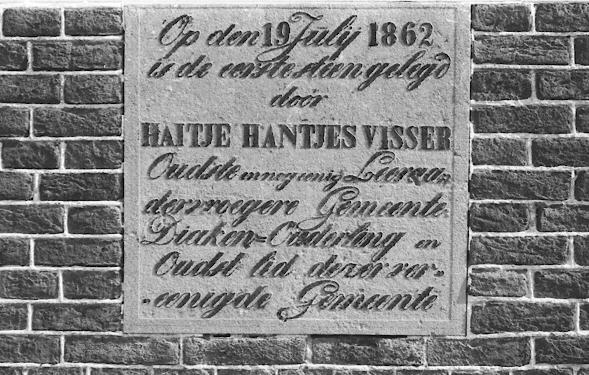 Op den 19 July 1862
is de eerste steen gelegd
door
HAITJE HANTJES VISSER
Oudste en nog eenig Leeraar
der vroegere Gemeente.
Diaken=Ouderling en
Oudst lid dezer ver-
-eenigde Gemeente